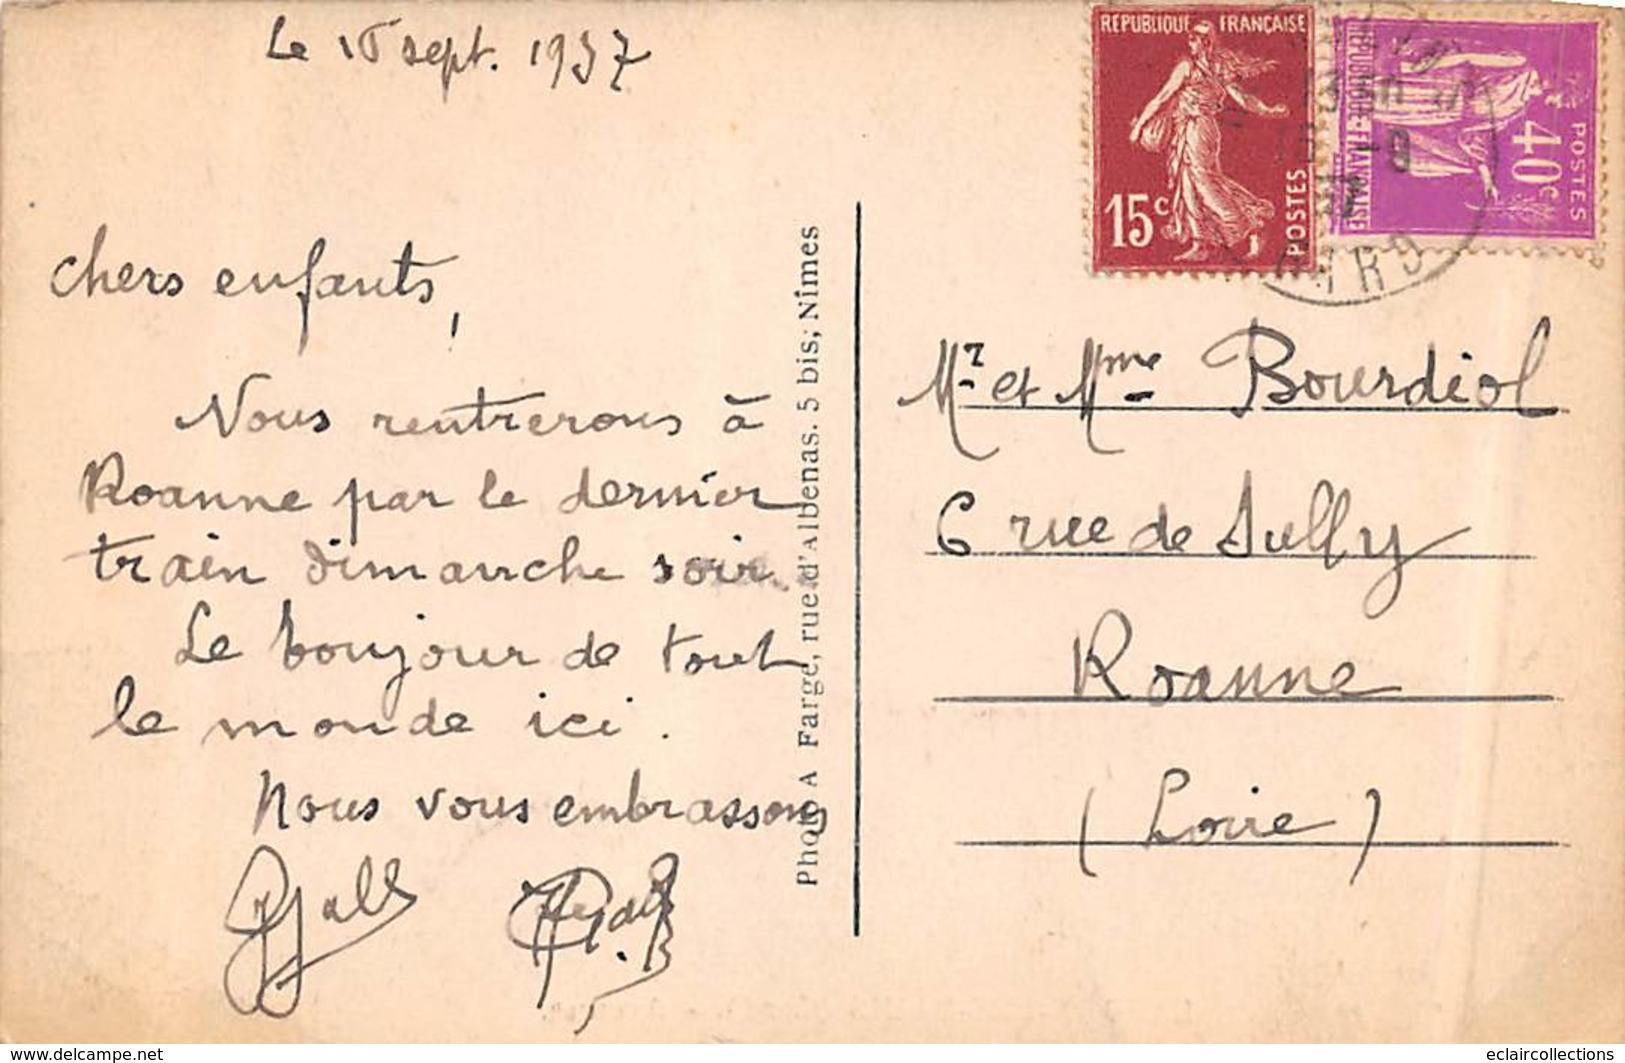 Le 15 sept. 1937
chers enfants,
Nous rentrerons à
Roanne par le dernier
train dimanche soir
Le bonjour de tout
le monde ici.
Nous vous embrassons
Photo A Farge, rue d'Albenas. 5 bis, Nîmes
REPUBLIQUE FRANÇAISE
15c
POSTES
REPUBLIQUE FRANÇAISE
40c
POSTES
GARD
Mr et Mme Bourdiol
6 rue de Sully
Roanne
(Loire)
www.delcampe.net
eclaircollections